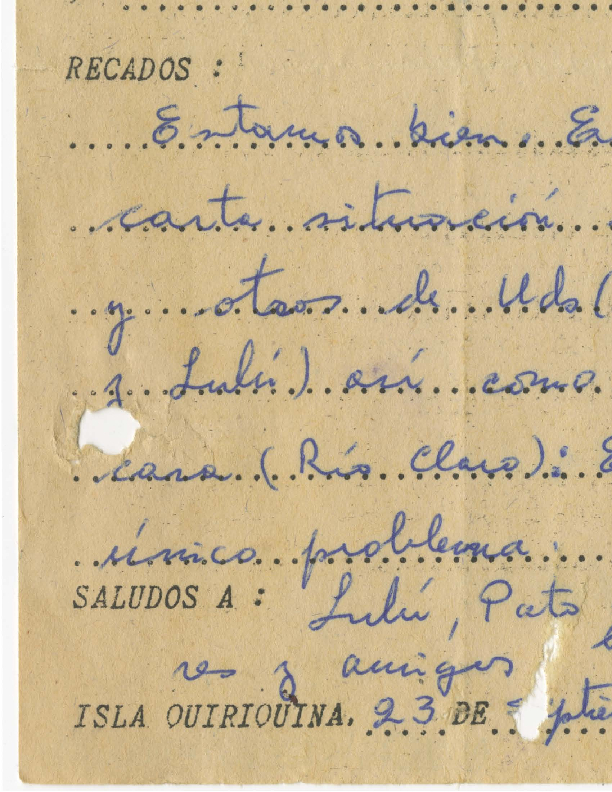 RECADOS :
Estamos bien. E
carta situación
y otros de Uds (
y Lulú) así como
casa (Río Claro): E
único problema.
SALUDOS A :
Lulú, Pato
res y amigos
ISLA QUIRIQUINA, 23 DE